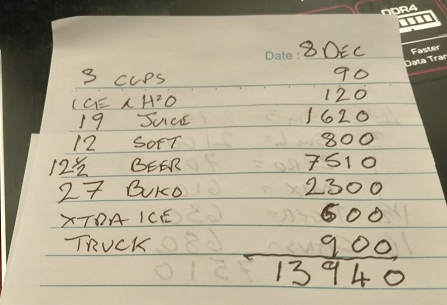 DDR4
Faster
Data Tran
Date: 8 DEC
3 CUPS 90
ICE & H2O 120
19 JUICE 1620
12 SOFT 800
12½ BEER 7510
27 BUKO 2300
XTRA ICE 600
TRUCK 900
13940